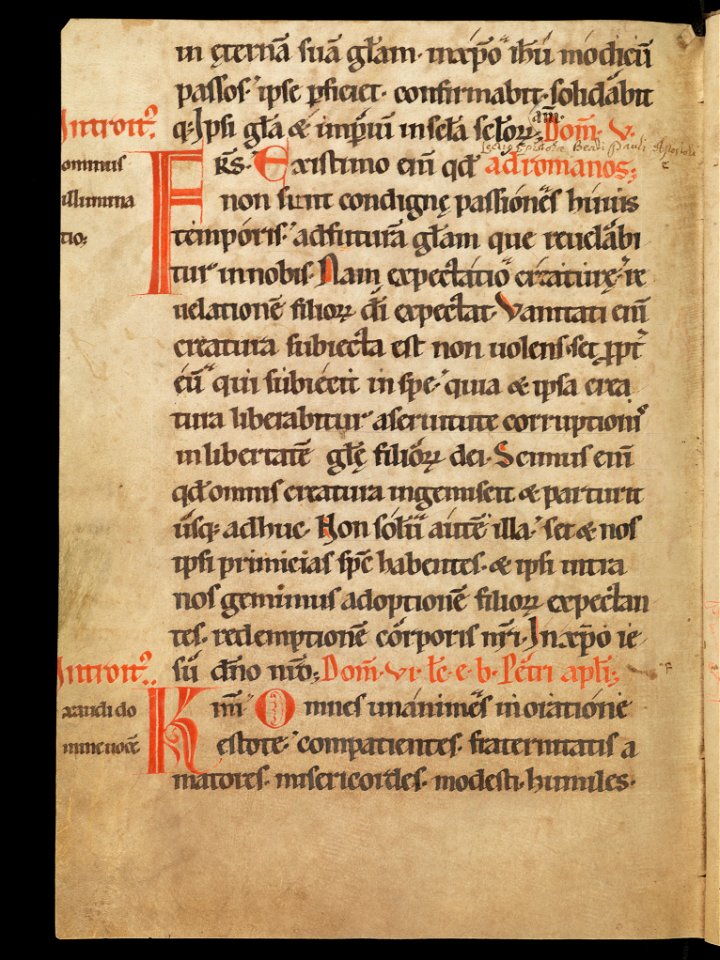 in ęternā suā gl̄am· inxp̄o ih̄u modicū
passos· ipse ꝑficiet· confirmabit· solidabit
q;· Ipsi gl̄a & imp̄iū in sc̄la sc̄loꝝ; am̄· Dom̄· V·
Lectio Epistolæ Beati Pauli Apostoli
Introit9·
omnis
illumina
tio;
FR̄S· Existimo eni̅ qd̄ ad romanos;
non sunt condignę passiones huius
temporis· ad futurā gl̄am que reuelabi
tur in nobis· Nam expectatio creaturę· re
uelationē filioꝝ dī expectat· Vanitati eni̅
creatura subiecta est non uolens· set ꝓpt̄
eū qui subiecit in spe· quia & ipsa crea
tura liberabitur a seruitute corruptionis
in libertatē gl̄ę filioꝝ dei· Scimus eni̅
qd̄ omnis creatura ingemiscit & parturit
usq; adhuc· Non solū autē illa· set & nos
ipsi primicias sp̄c habentes· & ipsi intra
nos gemimus adoptionē filioꝝ expectan
tes· redemptionē corporis nr̄i· In xp̄o ie
sū dn̄o nr̄o; Dom̄· vi· lc̄· e· b· Petri apl̄i;
Introit9·
exaudi do
mine uocē
Km̄i Omnes unanimes in oratione
estote· compatientes· fraternitatis a
matores· misericordes· modesti· humiles·